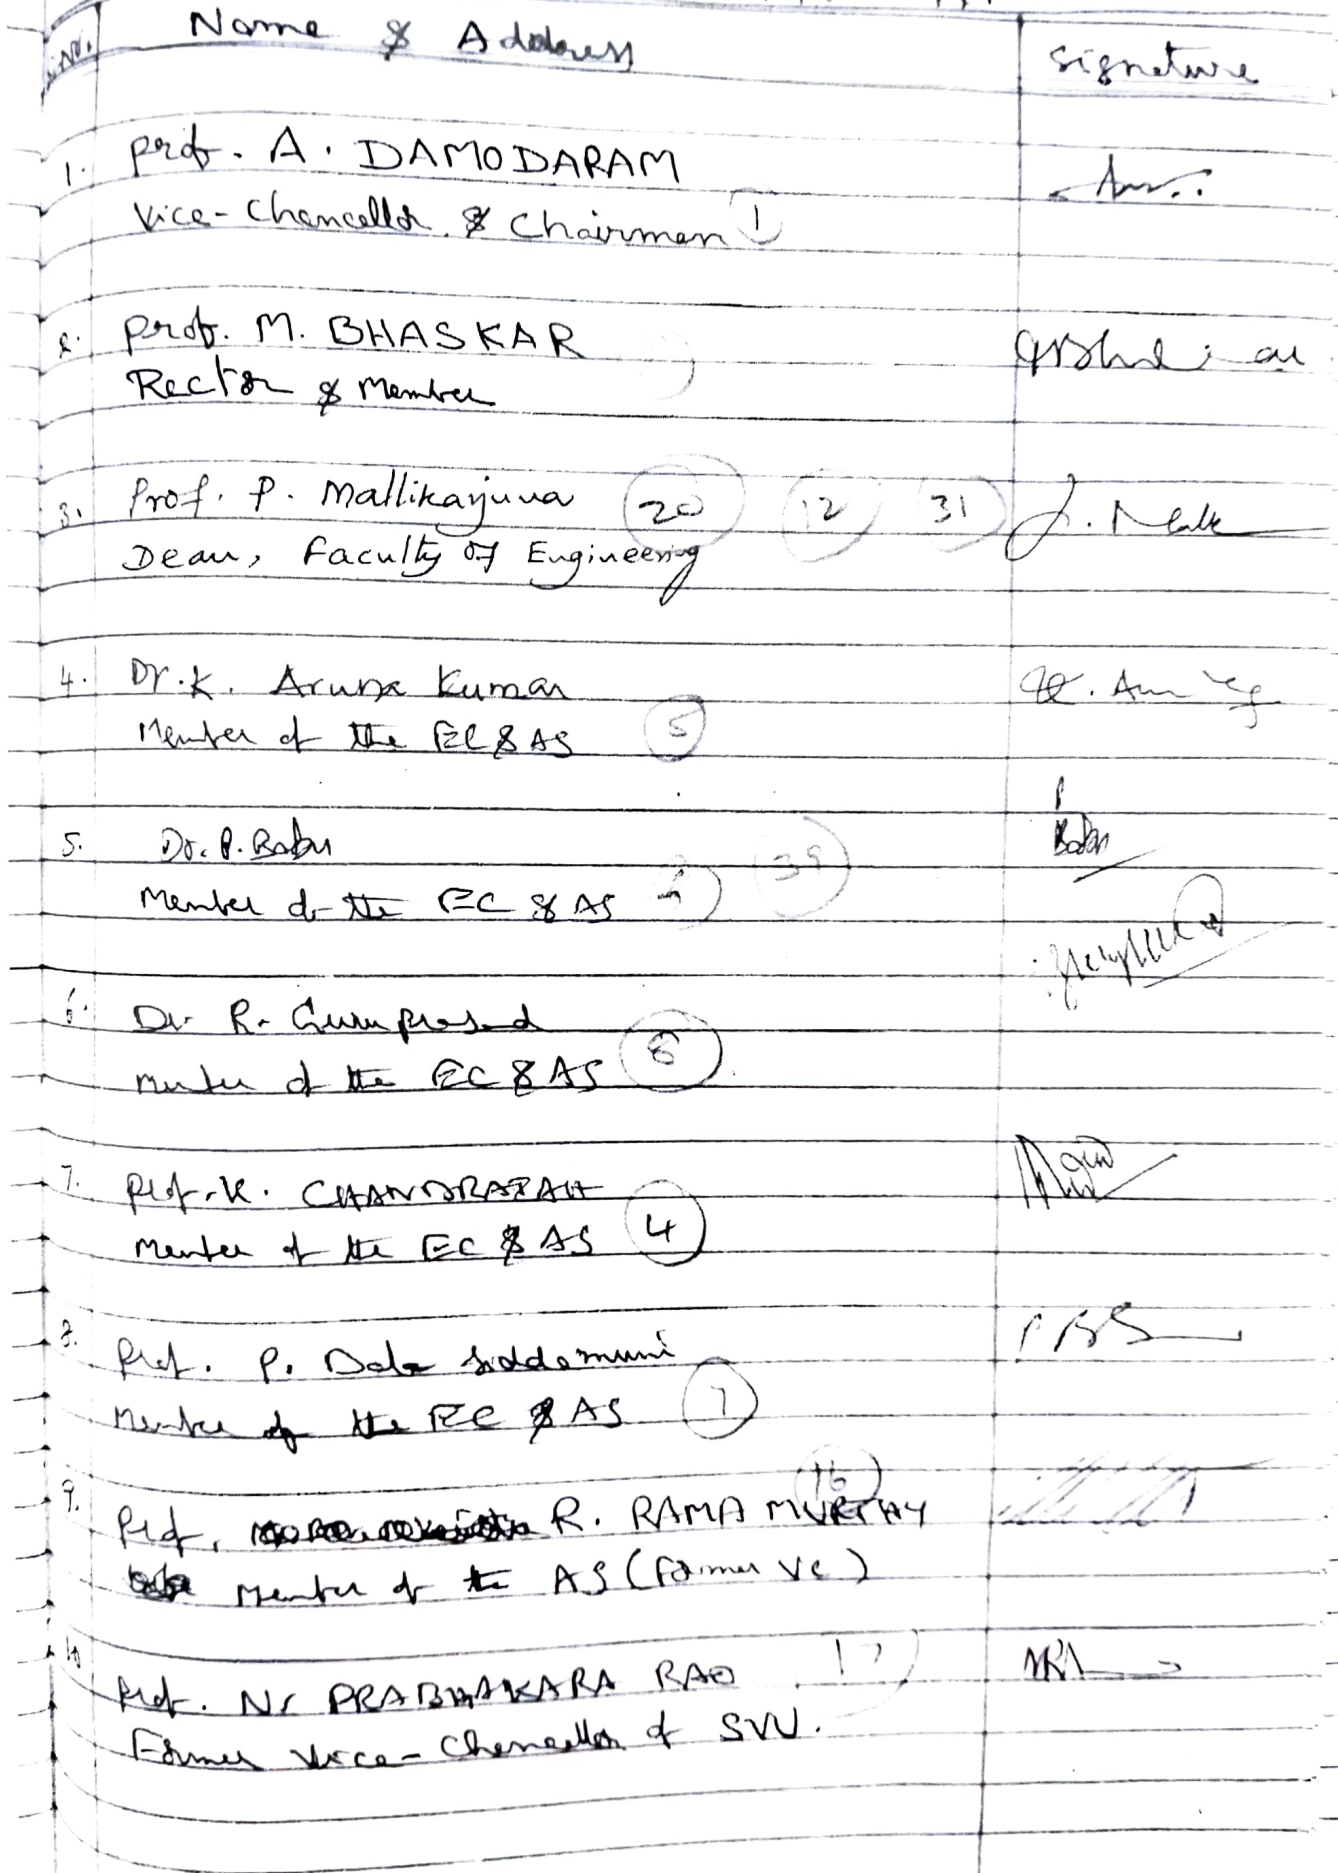 Name & Address
Signature
1. prof. A. DAMODARAM
Vice-Chancellor & Chairman 1
2. prof. M. BHASKAR
Rector & Member
3. Prof. P. Mallikarjuna 20 12 31
Dean, Faculty of Engineering
4. Dr. K. Aruna Kumar
Member of the EC & AS 5
5. Dr. P. Babu 39
Babu
Member of the EC & AS
6. Dr. R. Guruprasad
Member of the EC & AS 8
7. Prof. K. CHANDRAIAH
Member of the EC & AS 4
8. Prof. P. Bala Siddamuni
Member of the EC & AS 7
9. Prof. R. RAMA MURTHY 16
Member of the AS (Former VC)
10 Prof. N. PRABHAKARA RAO 17
Former Vice-Chancellor of SVU.